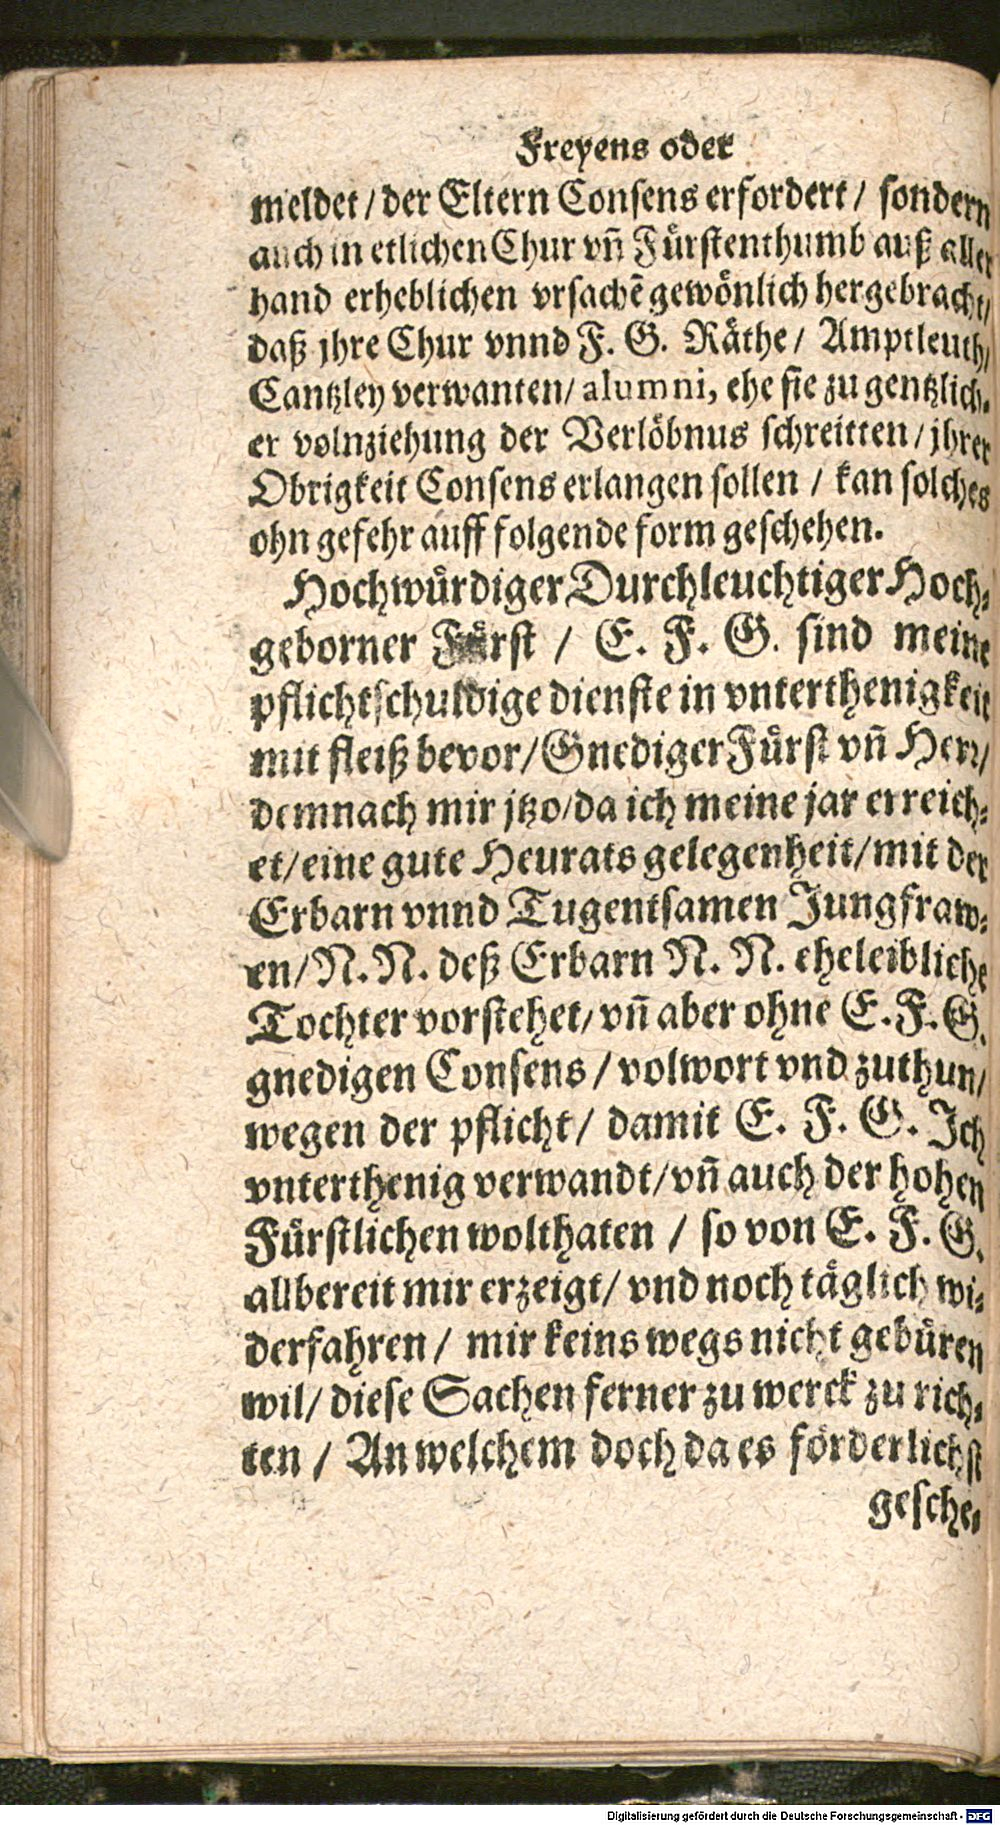 Freyens oder
meldet / der Eltern Consens erfordert / sondern
auch in etlichen Chur vn̄ Fürstenthumb auß aller
hand erheblichen vrsachē gewönlich hergebracht/
daß jhre Chur vnnd F. G. Räthe / Amptleuth/
Cantzley verwanten/ alumni, ehe sie zu gentzlich-
er volnziehung der Verlöbnus schreitten / jhrer
Obrigkeit Consens erlangen sollen / kan solches
ohn gefehr auff folgende form geschehen.
Hochwürdiger Durchleuchtiger Hoch-
geborner Fürst / E. F. G. sind meine
pflichtschuldige dienste in vnterthenigkeit
mit fleiß bevor/ Gnediger Fürst vn̄ Herr/
demnach mir jtzo/da ich meine jar erreich-
et/ eine gute Heurats gelegenheit/ mit der
Erbarn vnnd Tugentsamen Jungfraw-
en/ N. N. deß Erbarn N. N. eheleibliche
Tochter vorstehet/ vn̄ aber ohne E. F. G.
gnedigen Consens / volwort vnd zuthun/
wegen der pflicht / damit E. F. G. Ich
vnterthenig verwandt/ vn̄ auch der hohen
Fürstlichen wolthaten / so von E. F. G.
allbereit mir erzeigt/ vnd noch täglich wi-
derfahren / mir keins wegs nicht gebüren
wil/ diese Sachen ferner zu werck zu rich-
ten / An welchem doch da es förderlichst
gesche-
Digitalisierung gefördert durch die Deutsche Forschungsgemeinschaft - DFG